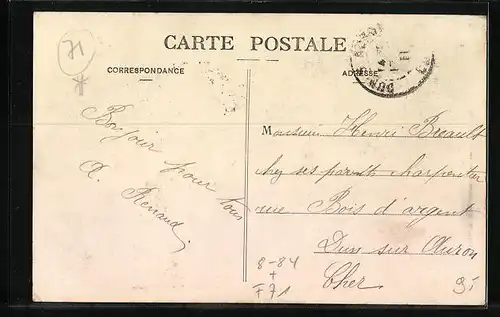 71
CARTE POSTALE
CORRESPONDANCE
ADRESSE
DUN
Bonjour pour tous
A. Renaud
Monsieur Henri Breault
chez ses parents charpentier
rue Bois d'argent
Dun sur Auron
Cher
8-84
+
F71
95